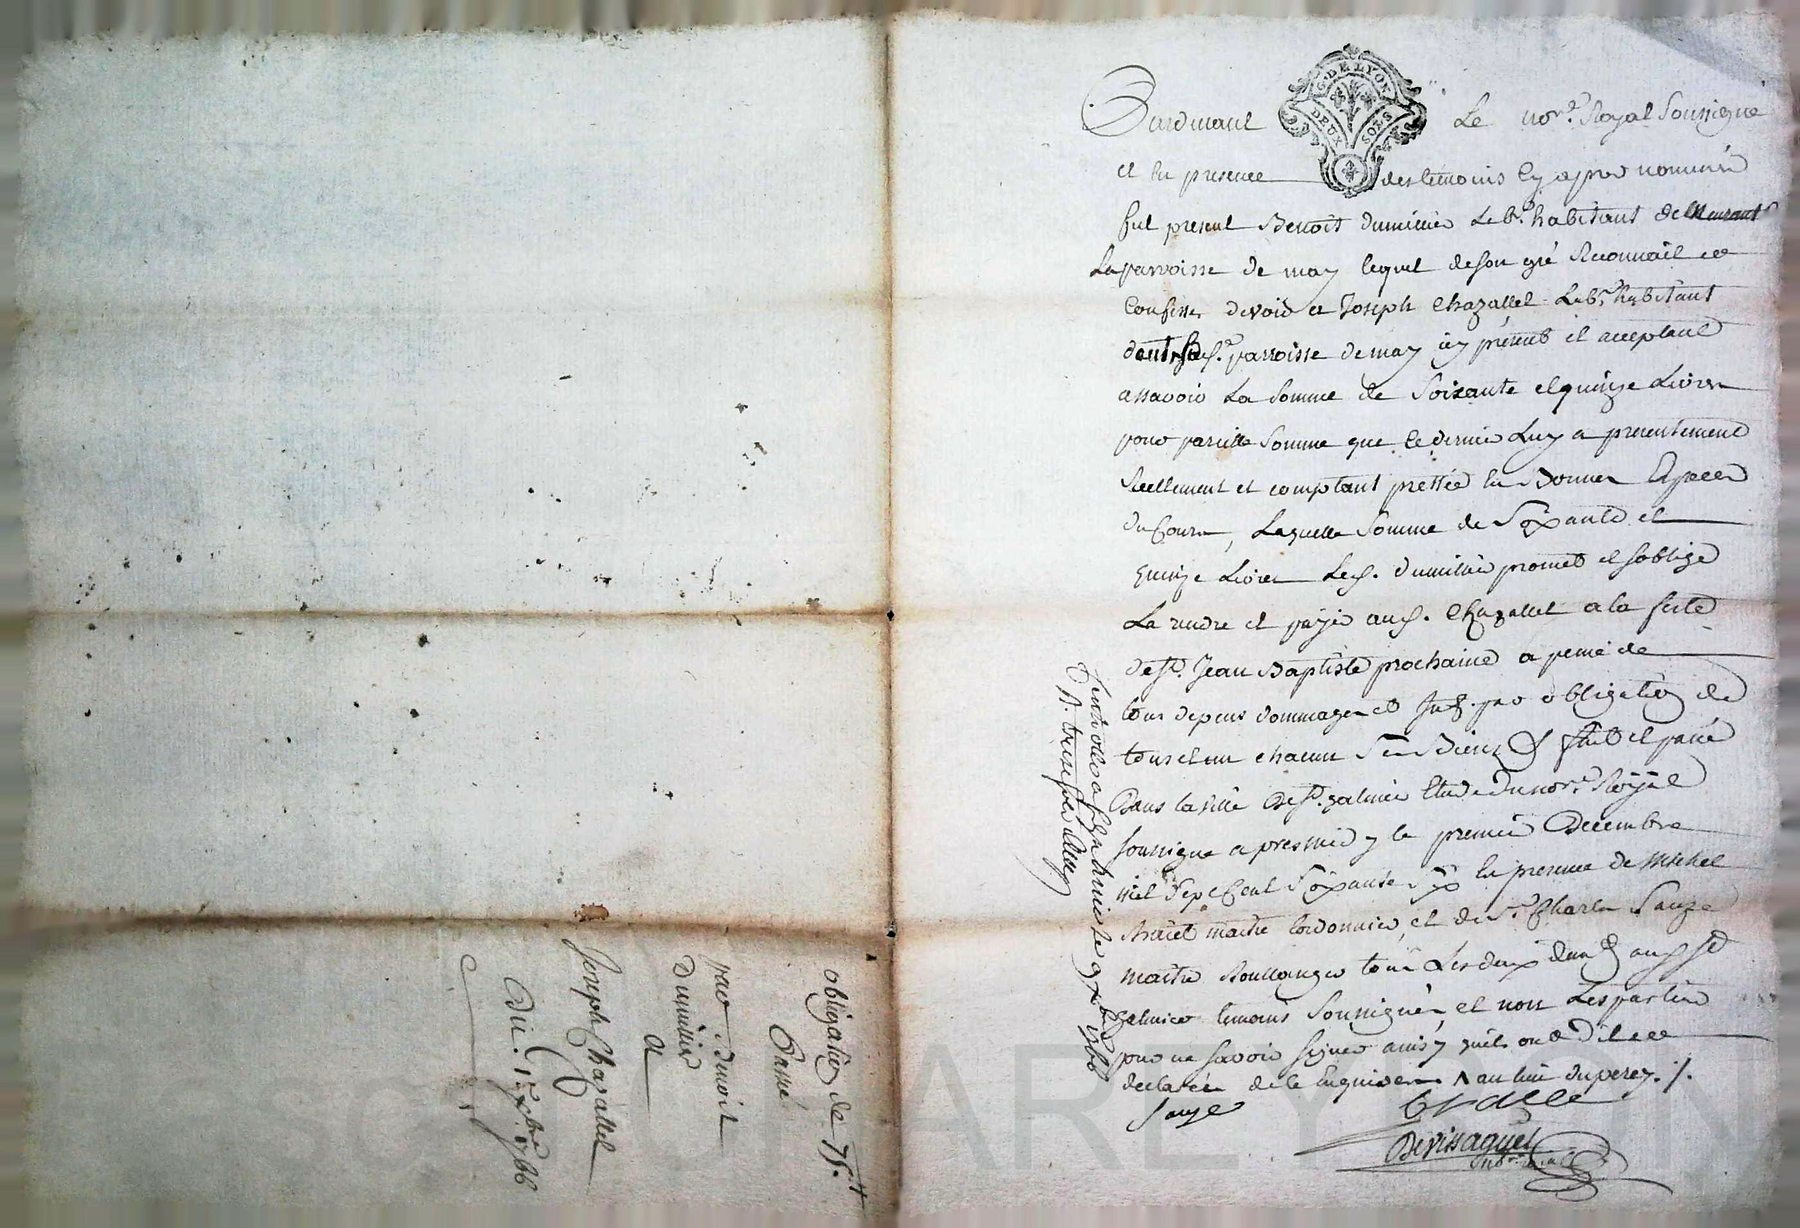 G. DE LYON
DEUX SOLS
Pardevant Le nore. Royal soussigné
et en presence des temoins cy apres nommés
fut present Benoit dumilier Labr. habitant de
La parroisse de may lequel de son gré Reconnait et
Confesse devoir a Joseph Chazallet Labr. habitant
parroisse de may icy present et acceptant
assavoir La somme de soixante et quinze Livres
pour pareille somme que le dernier Luy a presentement
Reellement et comptant prettée en Bonnes Especes
du Cours, Laquelle somme de soixante et
quinze Livres Led. dumilier promet et s'oblige
La rendre et payer aud. Chazallet a la feste
de St. Jean Baptiste prochaine a peine de
tous depens dommages et Int. par obligation de
tous et un chacun ses Biens & fait et passé
Dans la ville de St. galmier Etude du nore. Royal
soussigné apres midy le premier Decembre
mil sept Cent soixante six En presence de Michel
maitre Cordonnier, et de Sr. Charles Sauze
maitre Boullanger tous Les deux dud. St
galmier temoins soussignés, et non Les parties
pour ne savoir signer ainsy qu'ils ont dit et
declaré de ce Enquis
Sauze
Devissaguet
nore. Royal
Controllé a St. galmier le 9 xbre 1766
R. treize sols
obligation de 75 lt
Passé
par Benoit
Dumilier
A
Joseph Chazallet
Du 1er Xbre 1766
CHAREYRON